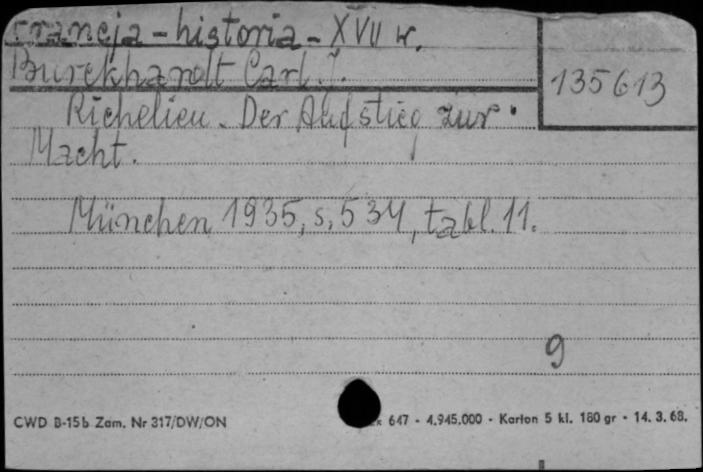 Francja - historia - XVII w.
Burckhardt Carl J.
135613
Richelieu. Der Aufstieg zur
Macht.
München 1935, s. 534, tabl. 11.
9
CWD B-15b Zam. Nr 317/DW/ON
647 - 4.945.000 - Karton 5 kl. 180 gr - 14. 3. 68.